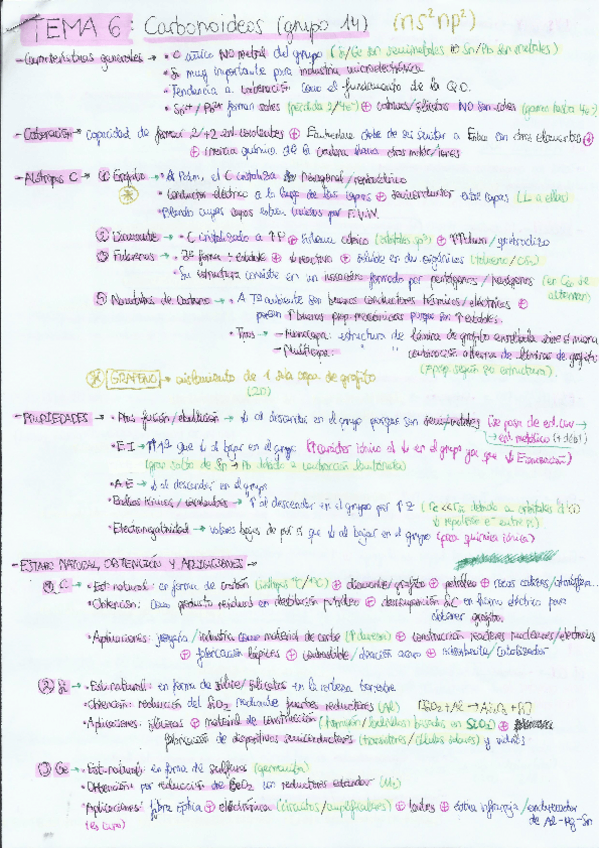 TEMA 6: Carbonoideos (grupo 14) (ns²np²)
- Características generales → • C único NO metal del grupo (Si/Ge son semimetales ⊕ Sn/Pb son metales)
• Si muy importante para industria microelectrónica.
• Tendencia a catenación como el fundamento de la Q.O.
• Sn²⁺/Pb²⁺ forman sales (pérdida 2/4e⁻) ⊕ NO son sales
- Catenación → capacidad de formar 2/+2 enl. covalentes ⊕ Ese enlace debe de ser similar a Enlace con otros elementos ⊕
⊕ inercia química de la cadena frente otras moléc/iones
- Alótropos C → ① Grafito → • A Patm, el C cristaliza hexagonal/
• Conductor eléctrico a lo largo de las capas ⊕ semiconductor entre capas (⊥ a ellas)
• Blando cuyas capas están unidas por F.V.W.
② Diamante → • C cristalizado a ↑P ⊕ Sistema cúbico (sp³) ⊕
③ Fulerenos → • 3ª forma + estable ⊕ ↓ reactivo ⊕ soluble en dis. orgánicos (tolueno/CS₂)
• Su estructura consiste en un formado por pentágonos/hexágonos (en C₆₀ se alternan)
⑤ Nanotubos de Carbono → • A Tª ambiente son buenos conductores térmicos/eléctricos ⊕
poseen ↑ buenas prop. mecánicas porque son ↑ estables.
• Tipos → - Monocapa: estructura de lámina de grafito enrollada sobre sí misma
- Multicapa: " " concéntrica de láminas de grafito
(≠ prop. según su estructura).
GRAFENO → aislamiento de 1 sola capa de grafito
(2D)
- PROPIEDADES → • Ptos fusión/ebullición → ↓ al descender en el grupo porque son semimetales (se pasa de enl. cov
→ enl. metálico (+ débil)
• E.I → ↑ 1ª que ↓ al bajar en el grupo (↑ carácter iónico al ↓ en el grupo ya que ↓ E ionización)
(gran salto de Sn → Pb debido a contracción lantánida)
• A.E → ↓ al descender en el grupo
• Radios iónicos/covalentes → ↑ al descender en el grupo por ↑Z
• Electronegatividad → valores bajos de por sí que ↓ al bajar en el grupo (poca química iónica)
- ESTADO NATURAL, OBTENCIÓN Y APLICACIONES →
① C → • Est. natural: en forma de carbón ⊕ diamante/grafito ⊕ petróleo ⊕ rocas calizas/atmósfera...
• Obtención: como producto residual en destilación petróleo ⊕ descomposición SiC en horno eléctrico para
obtener grafito.
• Aplicaciones: joyería/industria como material de corte (↑ dureza) ⊕ construcción reactores nucleares/electrodos
⊕ fabricación lápices ⊕ combustible/aleación acero ⊕ /catalizador
② Si → • Est. natural: en forma de sílice/silicatos en la corteza terrestre
• Obtención: reducción del SiO₂ mediante fuertes reductores (Al) [SiO₂+Al → Al₂O₃+Si]
• Aplicaciones: siliconas ⊕ material de construcción basados en SiO₂ ⊕
fabricación de dispositivos semiconductores (transistores/células solares) y vidrios.
③ Ge → • Est. natural: en forma de sulfuros (germanita)
• Obtención: por reducción de GeO₂ con reductores estándar (H₂)
• Aplicaciones: fibra óptica ⊕ electrónica (circuitos/amplificadores) ⊕ lentes ⊕ óptica infrarroja/endurecedor
de Al-Mg-Sn